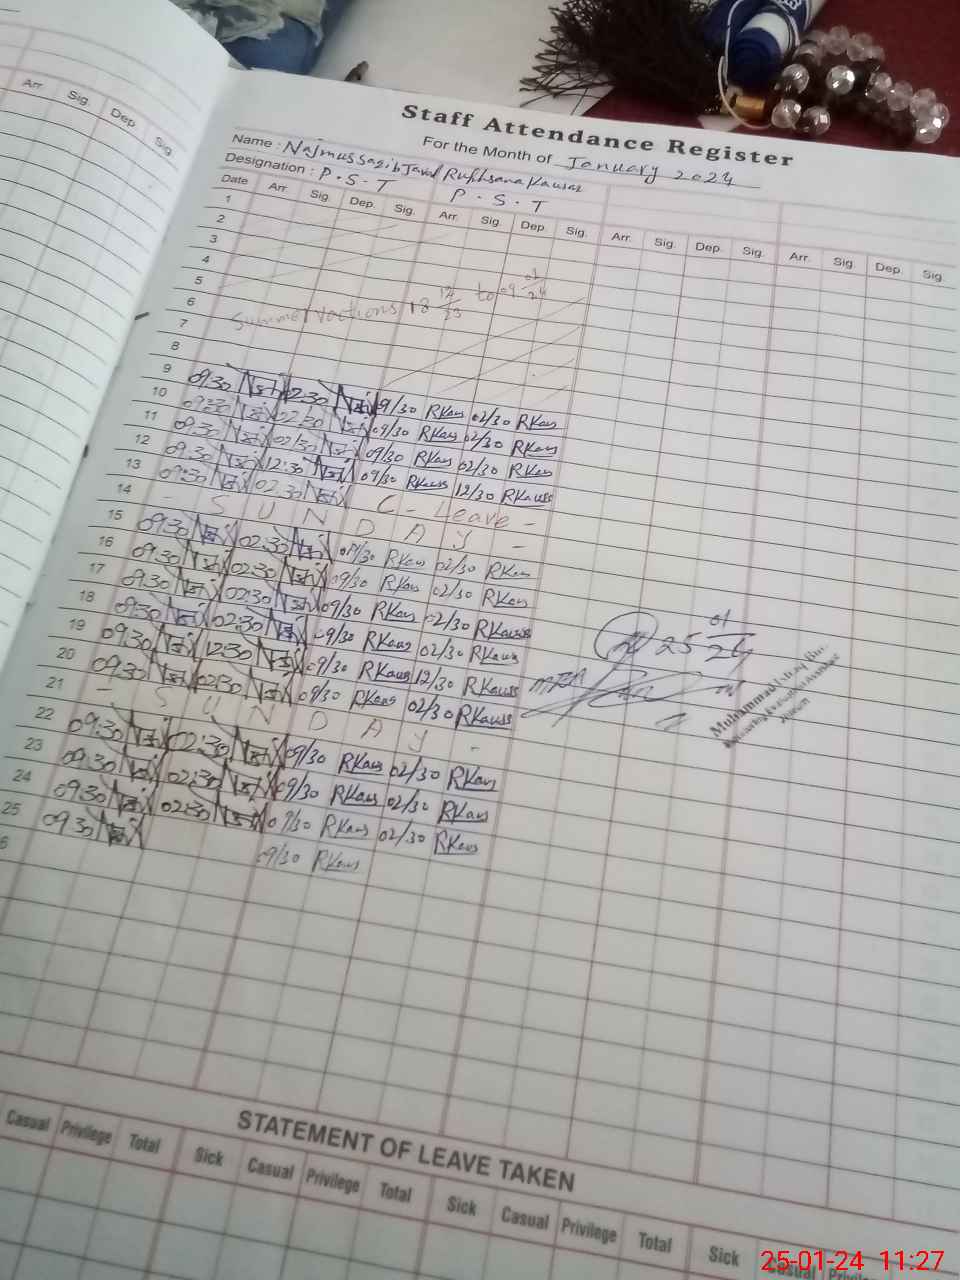 Arr. Sig. Dep. Sig.
Staff Attendance Register
For the Month of January 2024
Name : Najmussaqib Javid Rukhsana Kausar
Designation : P.S.T P.S.T
Date Arr. Sig. Dep. Sig. Arr. Sig. Dep. Sig. Arr. Sig. Dep. Sig. Arr. Sig. Dep. Sig.
1
2
3
4
5
6
Summer vactions 18 12/23 to 09 01/24
7
8
9 09:30 02:30 09/30 RKaus 02/30 RKaus
10 09:30 02:30 09/30 RKaus 02/30 RKaus
11 09:30 02:30 09/30 RKaus 02/30 RKaus
12 09:30 12:30 09/30 RKauss 12/30 RKauss
13 09:30 02:30 C - Leave -
14 - S U N D A Y -
15 09:30 02:30 09/30 RKaus 02/30 RKaus
16 09:30 02:30 09/30 RKaus 02/30 RKaus
17 09:30 02:30 09/30 RKaus 02/30 RKauss
18 09:30 02:30 09/30 RKaus 02/30 RKaus
19 09:30 12:30 09/30 RKaus 12/30 RKauss
20 09:30 02:30 09/30 RKaus 02/30 RKauss
21 - S U N D A Y -
22 09:30 02:30 09/30 RKaus 02/30 RKaus
23 09:30 02:30 09/30 RKaus 02/30 RKaus
24 09:30 02:30 09/30 RKaus 02/30 RKaus
25 09:30 09/30 RKaus
6
25 01/24
Muhammad
STATEMENT OF LEAVE TAKEN
Casual Privilege Total Sick Casual Privilege Total Sick Casual Privilege Total Sick Casual
25-01-24 11:27